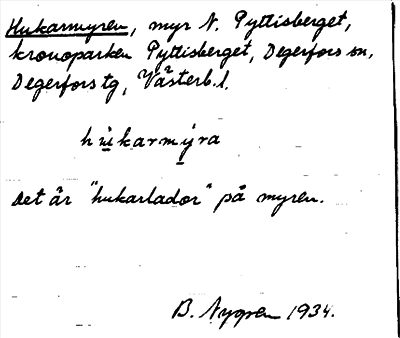 Hukarmyren, myr N. Pyttisberget,
kronoparken Pyttisberget, Degerfors sn,
Degerfors tg, Västerb. l.
hu̱karmy̱ra
Det är "hukarlador" på myren.
B. Nygren 1934.